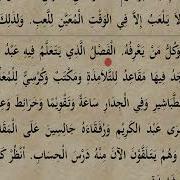 لَا يَلْعَبُ إِلَّا فِي الْوَقْتِ الْمُعَيَّنِ لِلَّعِبِ. وَلِذَلِكَ
وَكُلُّ مَنْ يَعْرِفُهُ. الْفَصْلُ الَّذِي يَتَعَلَّمُ فِيهِ عَبْدُ
جَدُ فِيهَا مَقَاعِدُ لِلتَّلَامِذَةِ وَمَكْتَبٌ وَكُرْسِيٌّ لِلْمُعَلِّ
الطَّبَاشِيرِ وَفِي الْجِدَارِ سَاعَةً وَتَقْوِيمًا وَخَرَائِطَ
رَى عَبْدَ الْكَرِيمِ وَرُفَقَاءَهُ جَالِسِينَ عَلَى الْمَقَا
وَهُمْ يَتَلَقَّوْنَ الْآنَ مِنْهُ دَرْسَ الْحِسَابِ. اُنْظُرْ